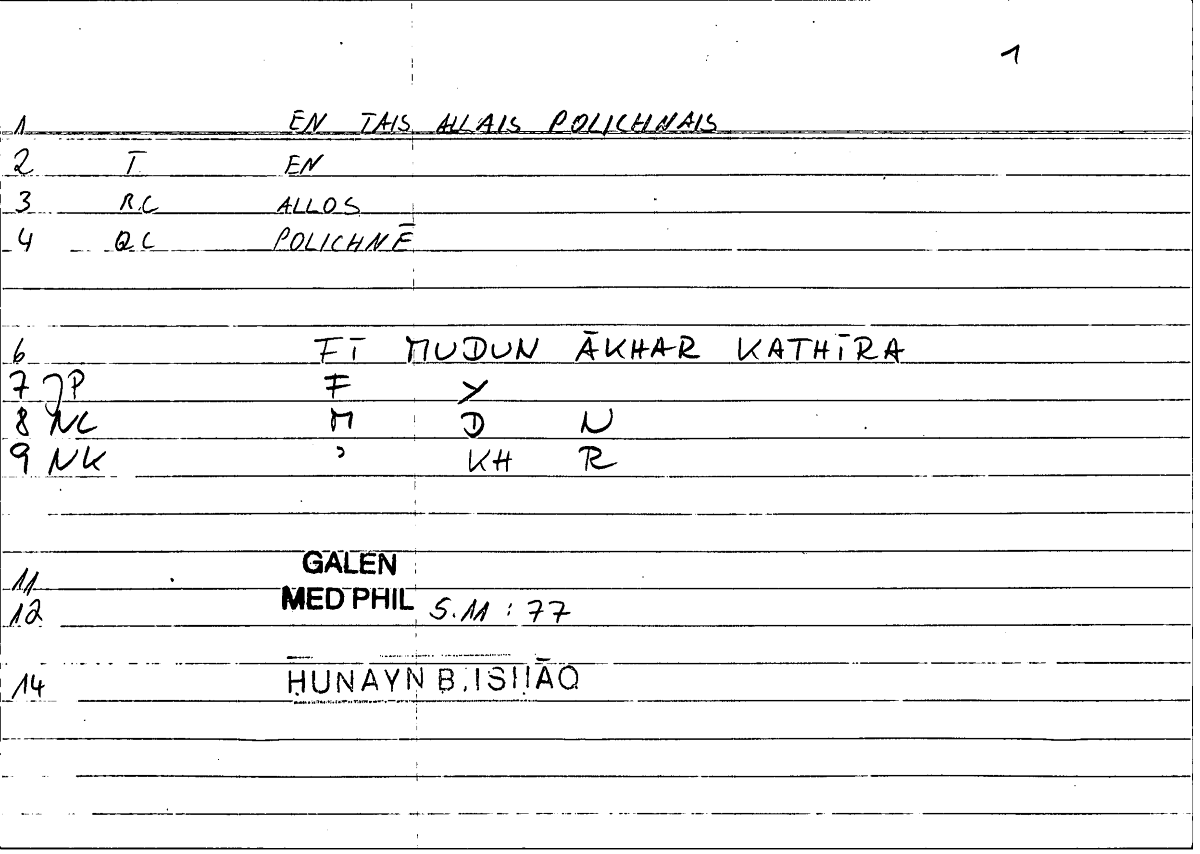 1
1 EN TAIS ALLAIS POLICHNAIS
2 T EN
3 RC ALLOS
4 QC POLICHNĒ
6 FĪ MUDUN ĀKHAR KATHĪRA
7 JP F Y
8 NC M D N
9 NK ʾ KH R
GALEN
11
MED PHIL
12 5.11 : 77
14 ḤUNAYN B. ISḤĀQ